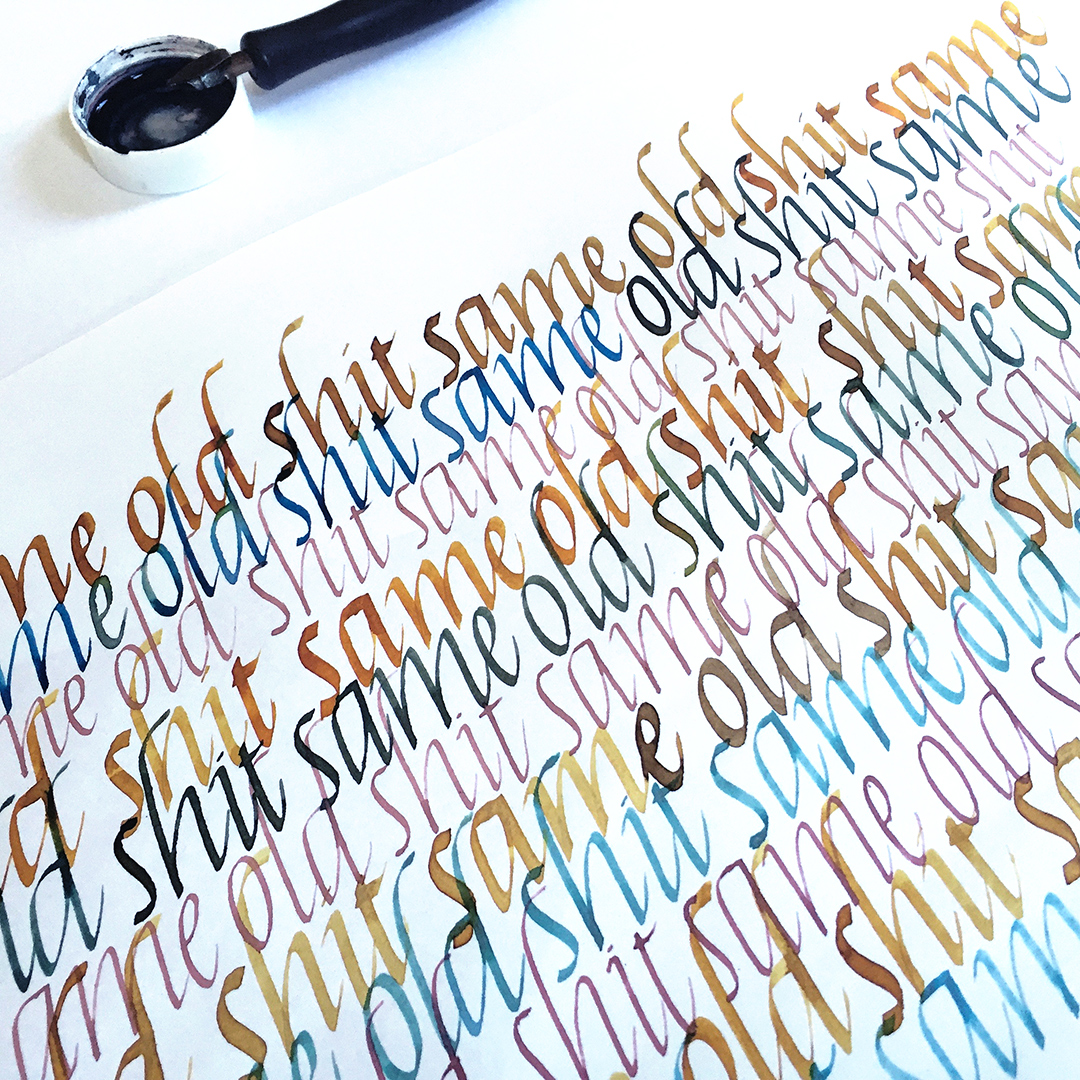 me old shit same old shit same
me old shit same old shit same
me old shit same old shit same shit
d shit same old shit shit sam
ld shit same old shit same ol
ame old shit same old shit sam
d shit same old shit sa
e old shit same old
shit same old s
old shit s
sam